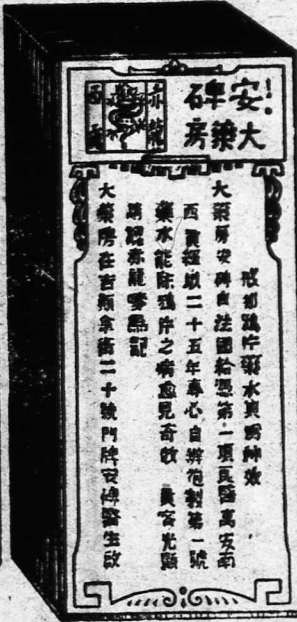 安大
碑藥房
赤龍
戒却鴉片藥水真爲神效
大藥房安碑自法國給憑第一項良醫萬安南
西貢經啟二十五年專心自辦泡製第一號
藥水能除鴉片之病愈見奇效 貴客光顧
請認赤龍嘜為記
大藥房在吉顛拿街二十號門牌安碑醫生啟